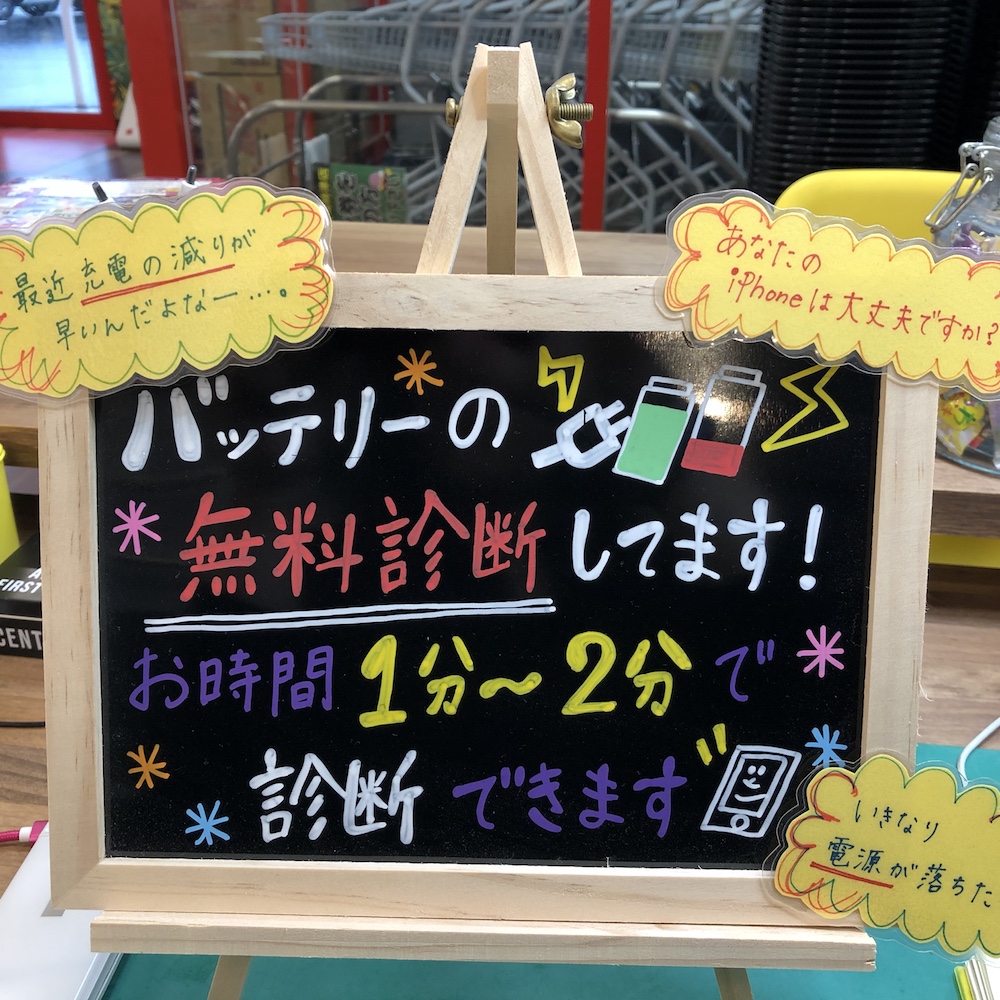 最近充電の減りが
早いんだよなー…。
あなたの
iPhoneは大丈夫ですか?
バッテリーの
無料診断してます!
お時間1分〜2分で
診断できます
いきなり
電源が落ちた
FIRST
CENT